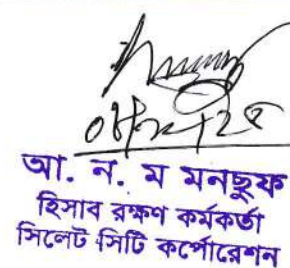 আ. ন. ম মনছুফ
হিসাব রক্ষণ কর্মকর্তা
সিলেট সিটি কর্পোরেশন